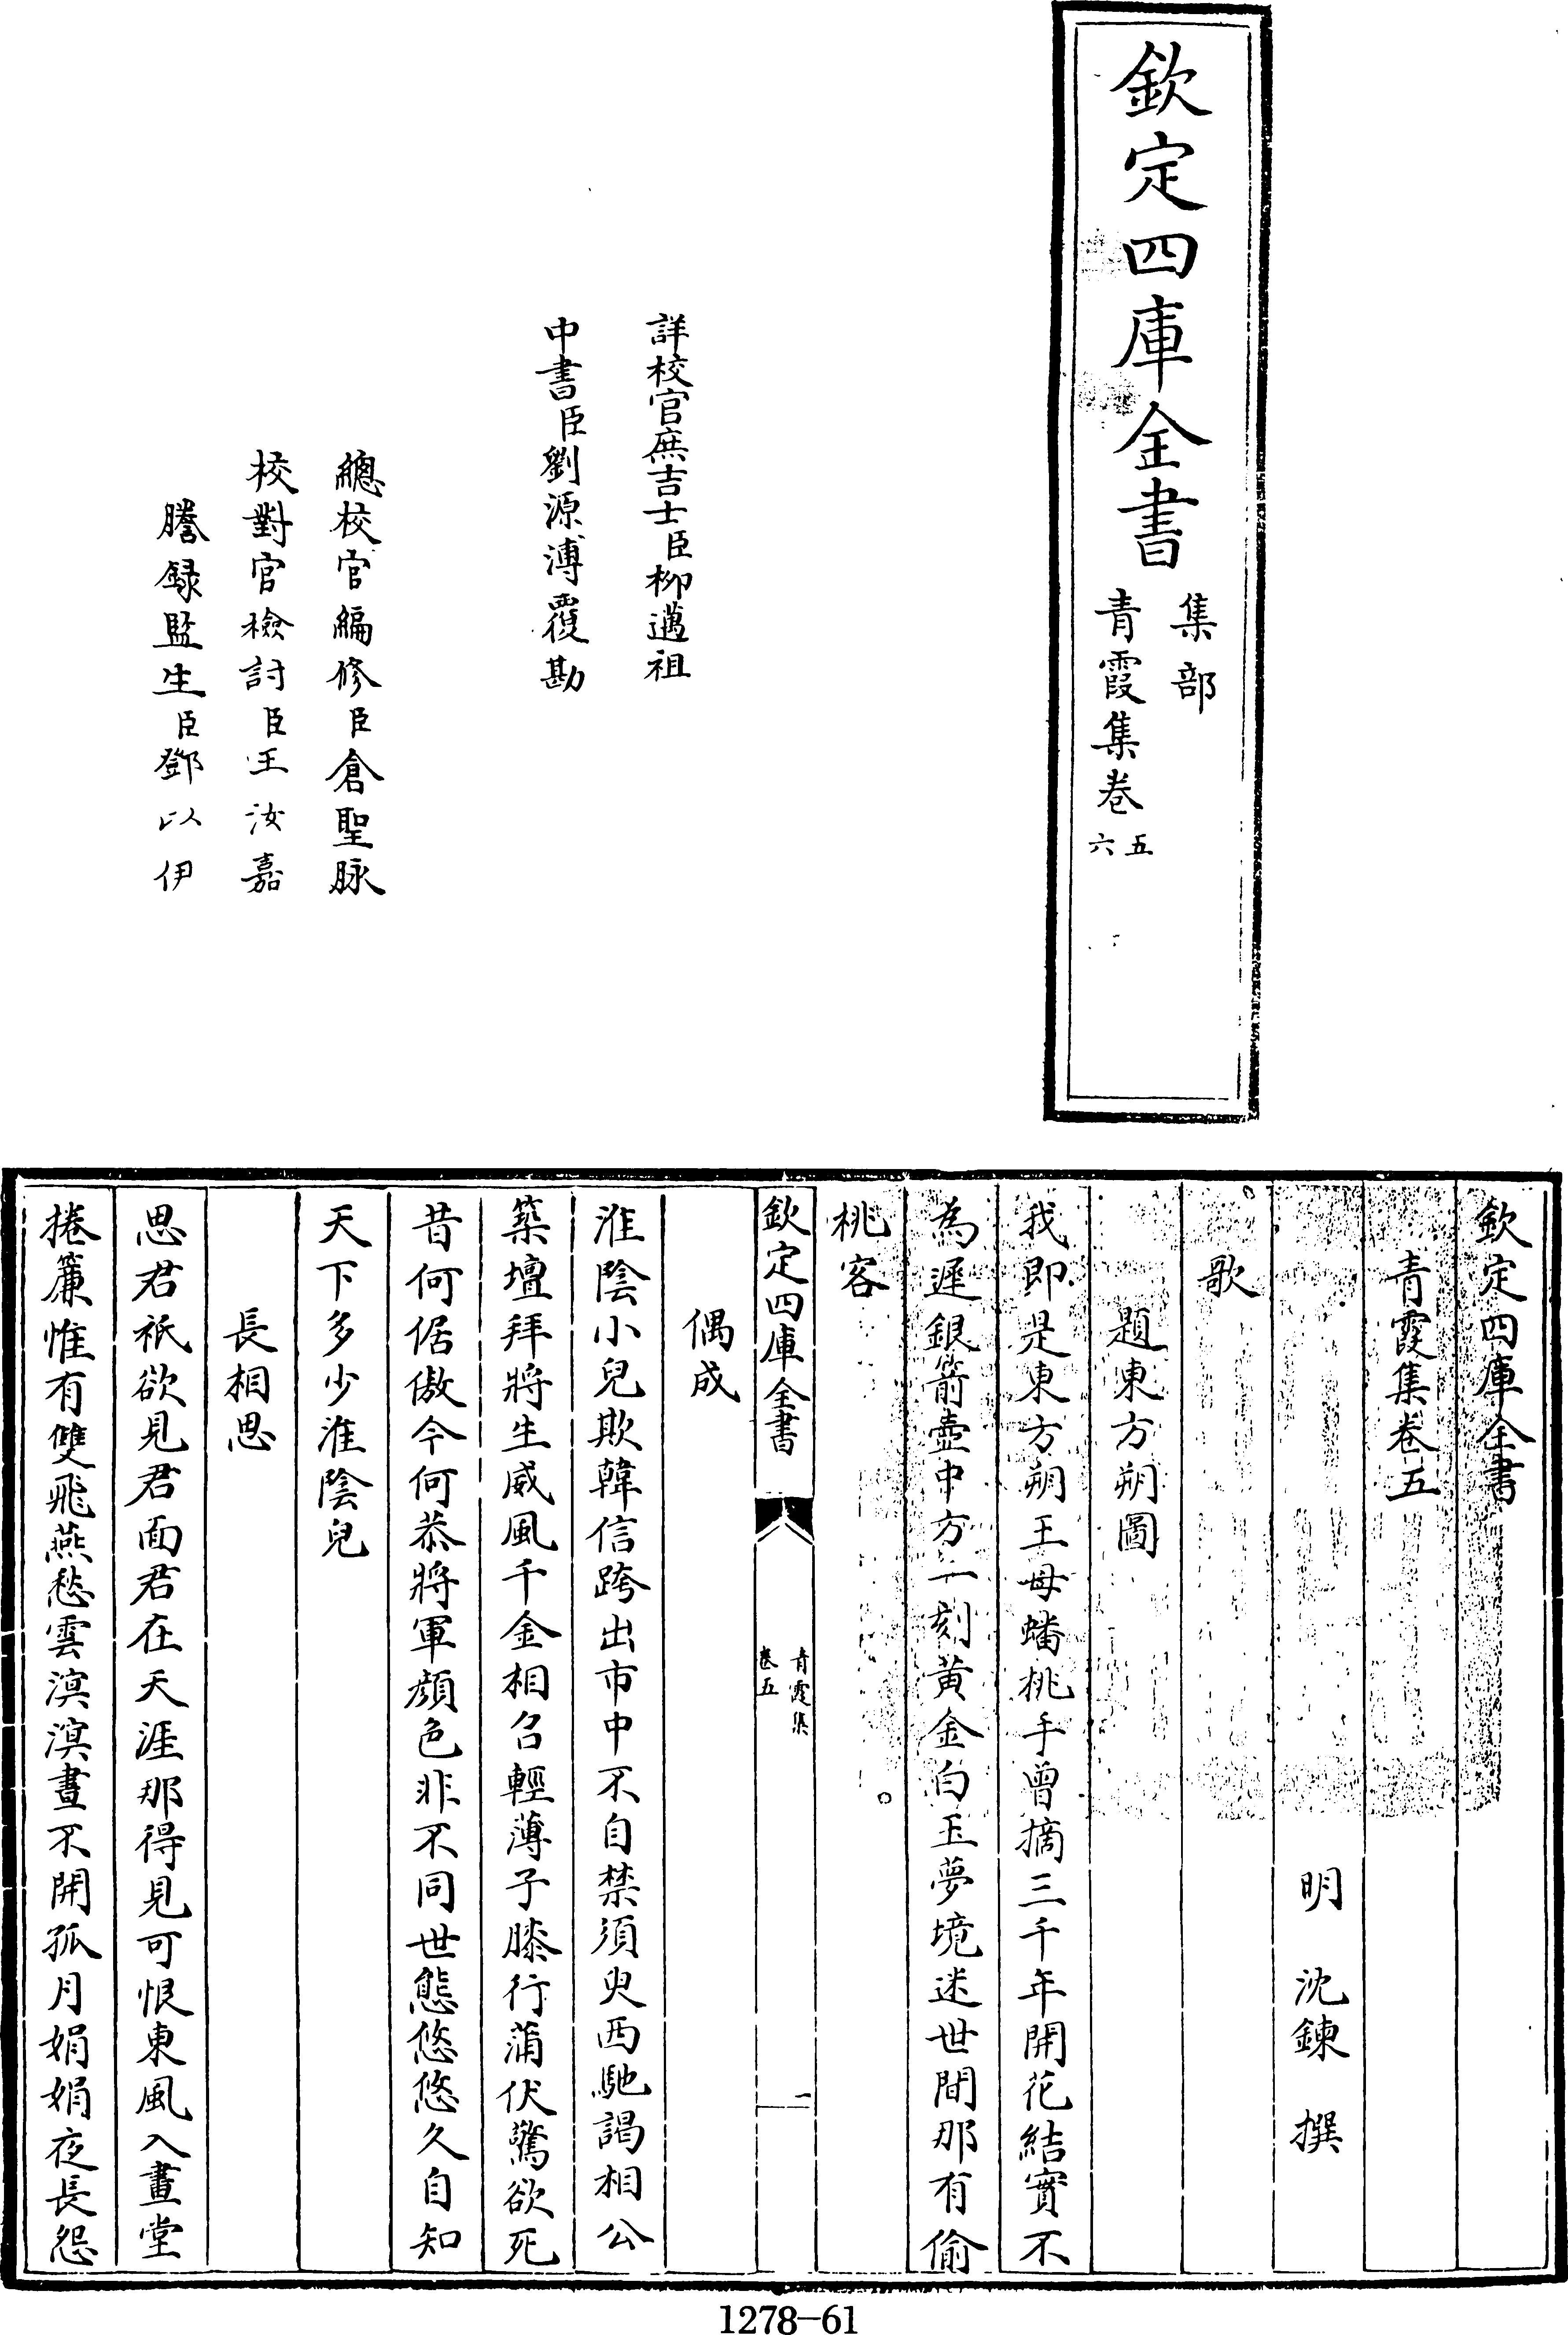 欽定四庫全書
集部
青霞集卷五六
詳校官庶吉士臣柳邁祖
中書臣劉源溥覆勘
總校官編修臣倉聖脉
校對官檢討臣王汝嘉
謄録監生臣鄧以伊
欽定四庫全書
青霞集卷五
明 沈鍊 撰
歌
題東方朔圖
我即是東方朔王母蟠桃手曾摘三千年開花結實不
為遲銀箭壺中方一刻黄金白玉夢境迷世間那有偷
桃客
欽定四庫全書
青霞集
卷五
一
偶成
淮陰小兒欺韓信跨出市中不自禁須臾西馳謁相公
築壇拜將生威風千金相召輕薄子膝行蒲伏驚欲死
昔何倨傲今何恭將軍顔色非不同世態悠悠久自知
天下多少淮陰兒
長相思
思君祇欲見君面君在天涯那得見可恨東風入畫堂
捲簾惟有雙飛燕愁雲溟溟晝不開孤月娟娟夜長怨
1278-61